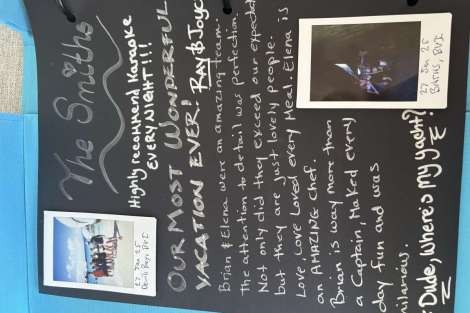 The Smiths
Highly recommend Karaoke
EVERY NIGHT!!!
OUR MOST WONDERFUL
VACATION EVER! RAY & JOYC
Brian & Elena were an amazing team.
the attention to detail was perfection.
Not only did they exceed our expectat
but they are just lovely people.
Love, Love Loved every Meal. Elena is
an AMAZING Chef.
Brian is way more than
a Captain, Maked every
day fun and was
hilarious.
"Dude, Where's my yacht?"
27 Jan 25
BVI
27 Jan 25
Baths, BVI